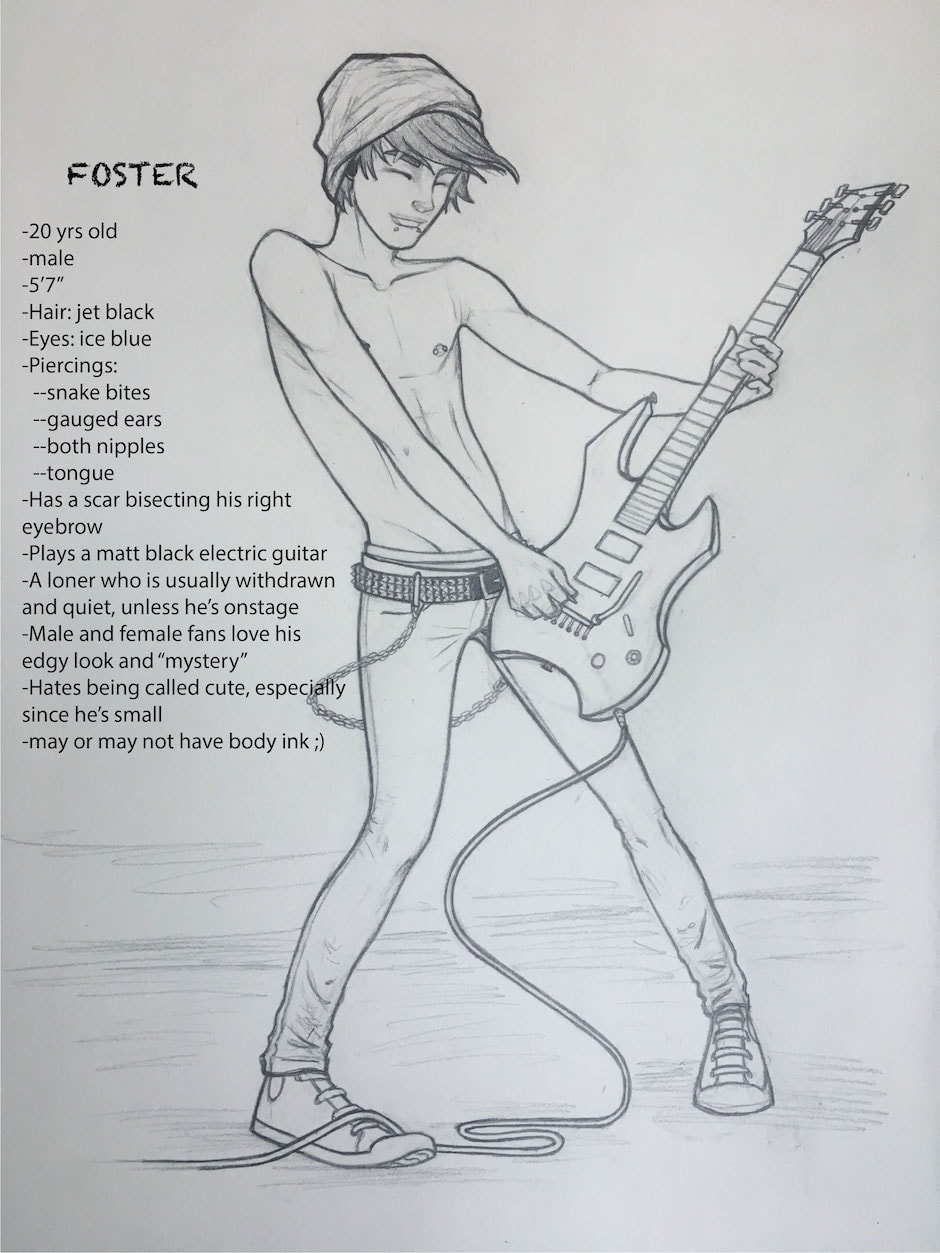 FOSTER
-20 yrs old
-male
-5’7”
-Hair: jet black
-Eyes: ice blue
-Piercings:
--snake bites
--gauged ears
--both nipples
--tongue
-Has a scar bisecting his right
eyebrow
-Plays a matt black electric guitar
-A loner who is usually withdrawn
and quiet, unless he’s onstage
-Male and female fans love his
edgy look and “mystery”
-Hates being called cute, especially
since he’s small
-may or may not have body ink ;)